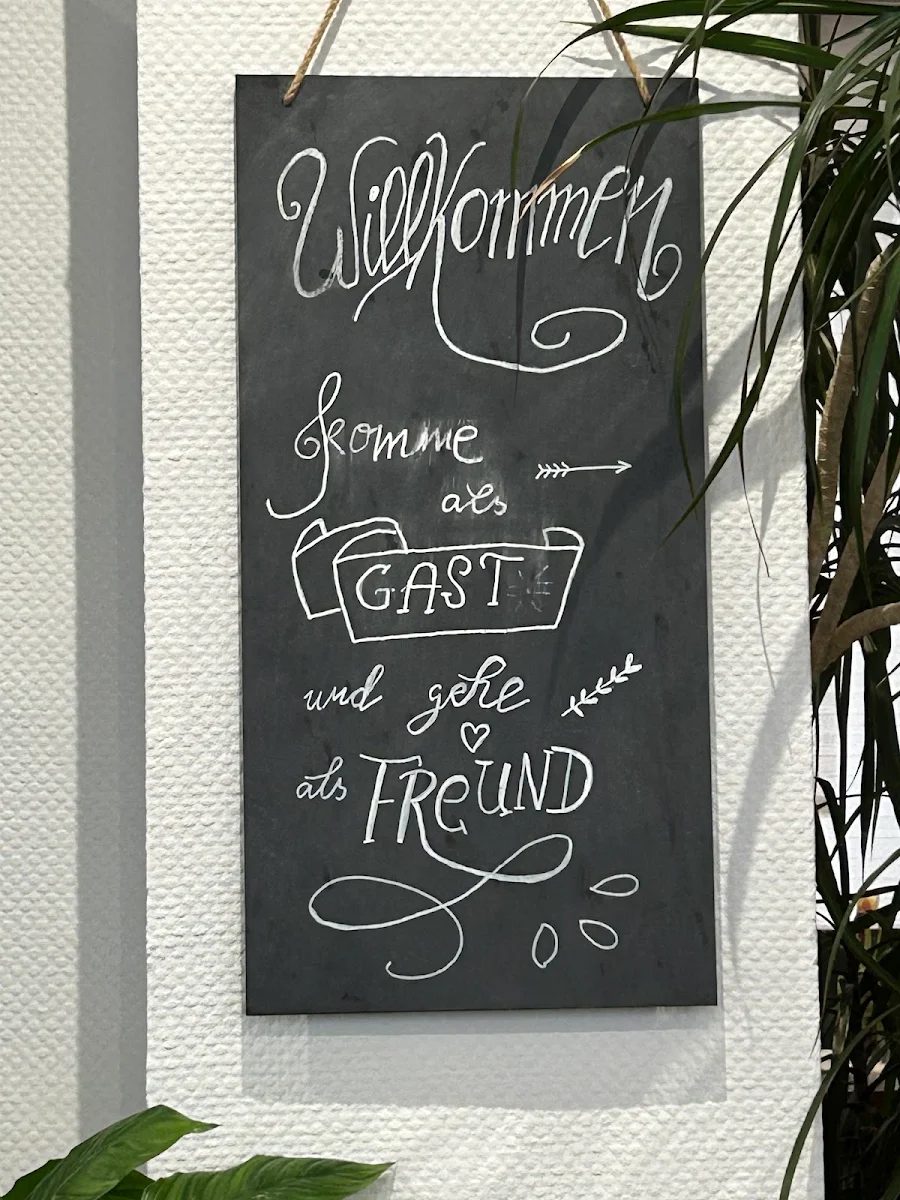 Willkommen
Komme
als
GAST
und gehe
als FReUND